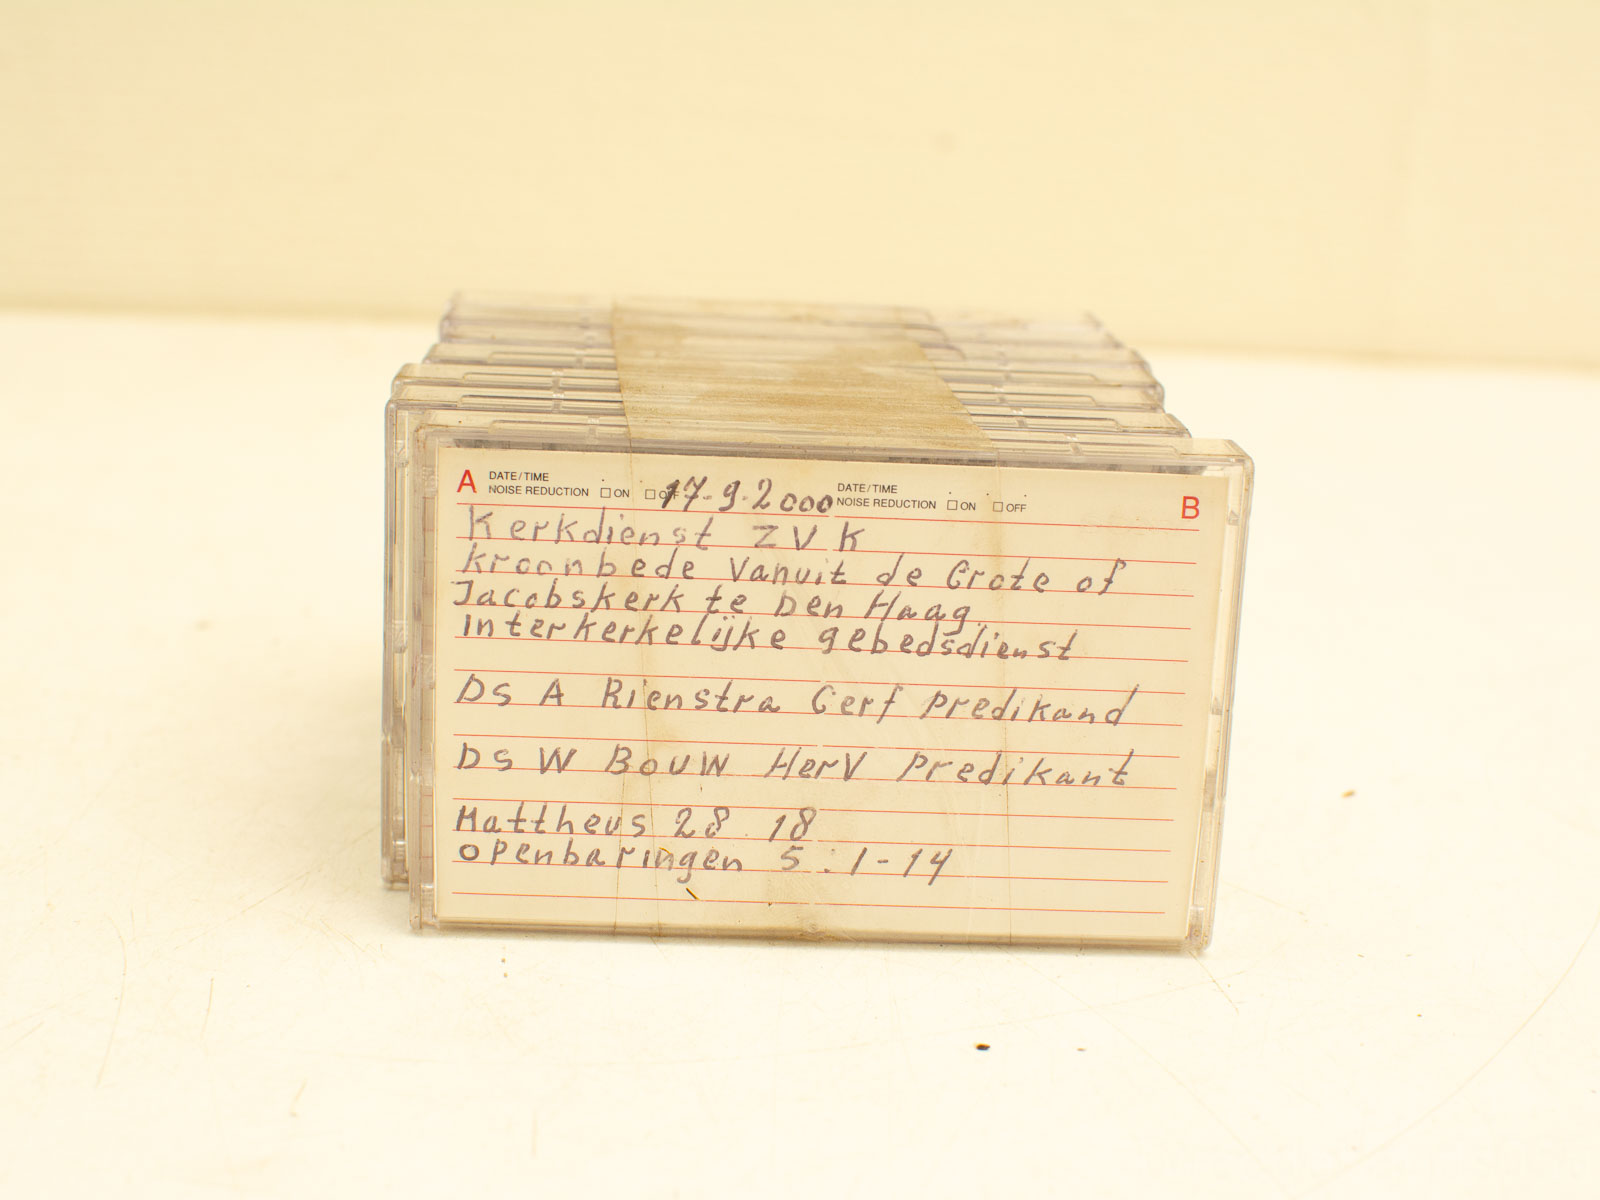 A DATE/TIME
NOISE REDUCTION □ ON □ OFF
17-9-2000
DATE/TIME
NOISE REDUCTION □ ON □ OFF
B
Kerkdienst ZVK
kroonbede vanuit de Grote of
Jacobskerk te Den Haag.
interkerkelijke gebedsdienst
DS A Rienstra Gerf predikand
DS W BOUW HerV Predikant
Mattheus 28 . 18
openbaringen 5 : 1-14